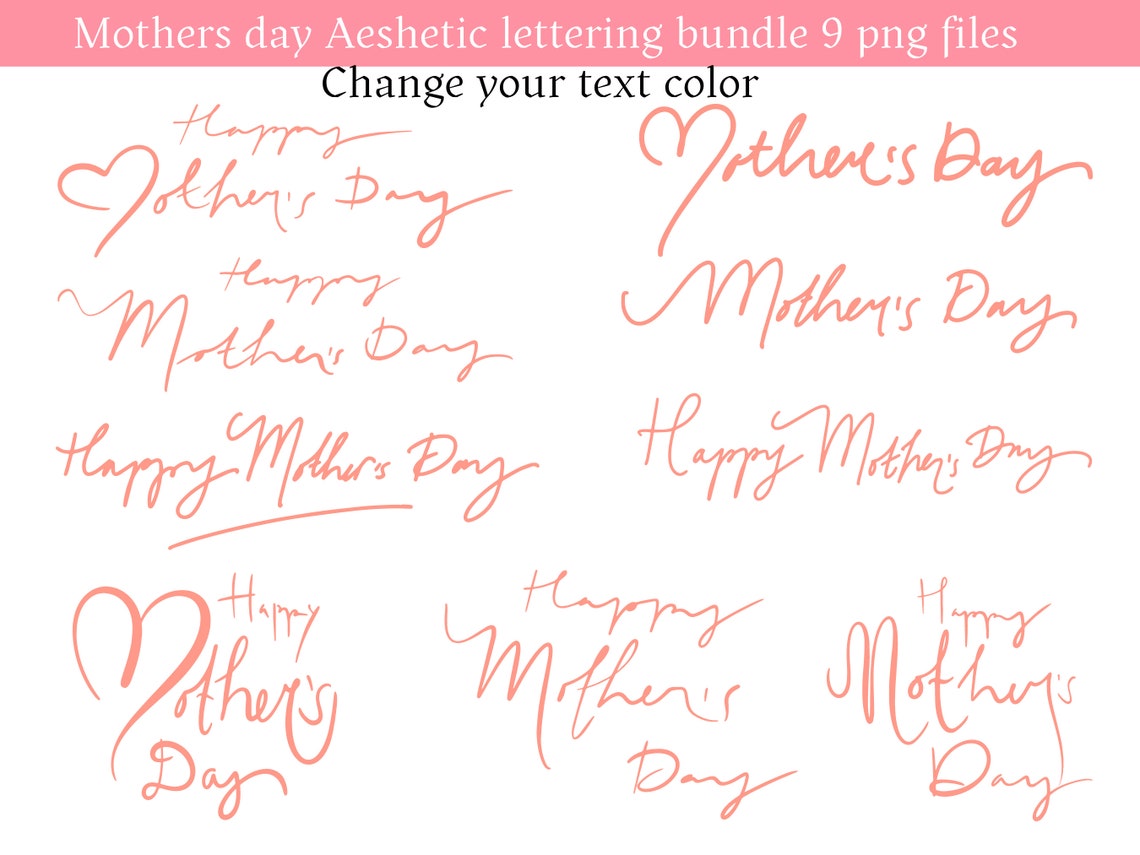 Mothers day Aeshetic lettering bundle 9 png files
Change your text color
Happy
Mother's Day
Mother's Day
Happy
Mother's Day
Mother's Day
Happy Mother's Day
Happy Mother's Day
Happy
Mother's
Day
Happy
Mother's
Day
Happy
Mother's
Day